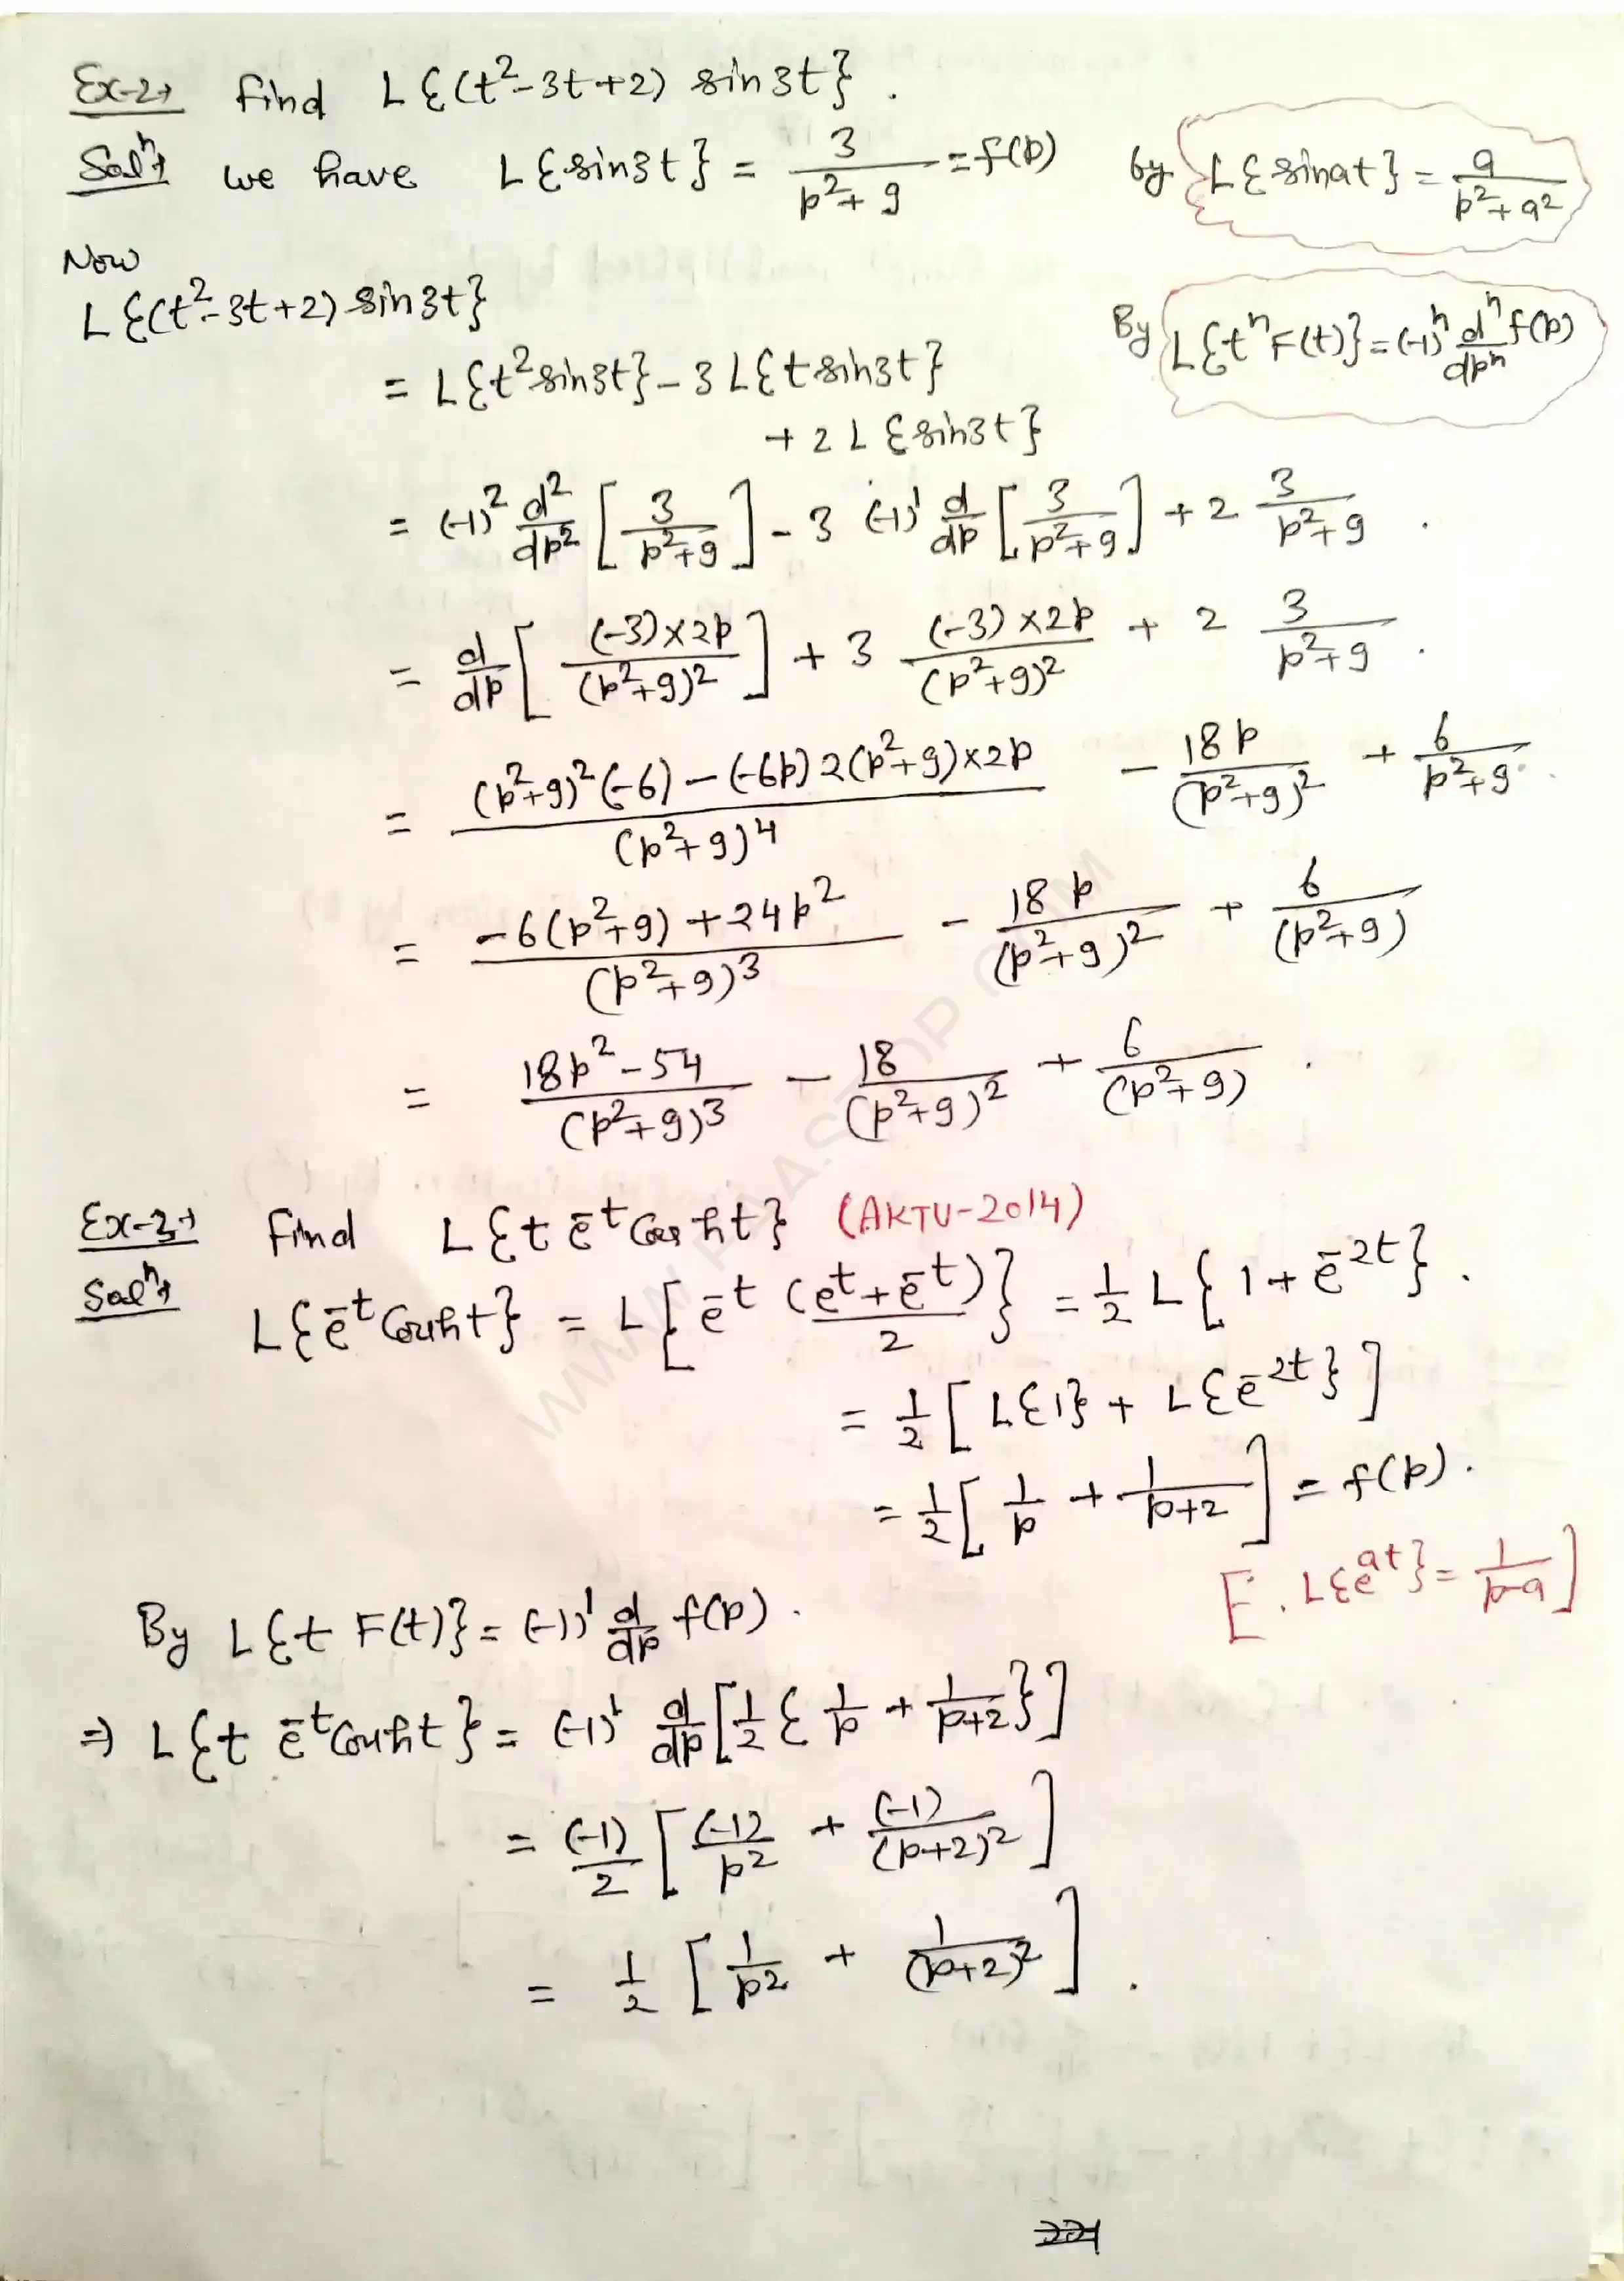 Ex-2→ Find L{(t²-3t+2) sin3t}.
Solⁿ→ we have L{sin3t} = 3/(p²+9) = f(p) by L{sinat} = a/(p²+a²)
Now
L{(t²-3t+2) sin3t}
= L{t²sin3t} - 3L{tsin3t} By L{tⁿF(t)} = (-1)ⁿ dⁿ/dpⁿ f(p)
+ 2L{sin3t}
= (-1)² d²/dp² [3/(p²+9)] - 3 (-1)¹ d/dp [3/(p²+9)] + 2 3/(p²+9).
= d/dp [(-3)×2p/(p²+9)²] + 3 (-3)×2p/(p²+9)² + 2 3/(p²+9).
= ((p²+9)²(-6) - (-6p)2(p²+9)×2p)/(p²+9)⁴ - 18p/(p²+9)² + 6/(p²+9).
= (-6(p²+9) + 24p²)/(p²+9)³ - 18p/(p²+9)² + 6/(p²+9)
= (18p²-54)/(p²+9)³ - 18/(p²+9)² + 6/(p²+9).
Ex-3→ Find L{t e⁻ᵗ Cosht} (AKTU-2014)
Solⁿ→ L{e⁻ᵗCosht} = L{e⁻ᵗ (eᵗ+e⁻ᵗ)/2} = 1/2 L{1+e⁻²ᵗ}.
= 1/2 [L{1} + L{e⁻²ᵗ}]
= 1/2 [1/p + 1/(p+2)] = f(p).
[∵ L{eᵃᵗ} = 1/(p-a)]
By L{t F(t)} = (-1)¹ d/dp f(p).
⇒ L{t e⁻ᵗCosht} = (-1)¹ d/dp [1/2 {1/p + 1/(p+2)}]
= (-1)/2 [(-1)/p² + (-1)/(p+2)²]
= 1/2 [1/p² + 1/(p+2)²].